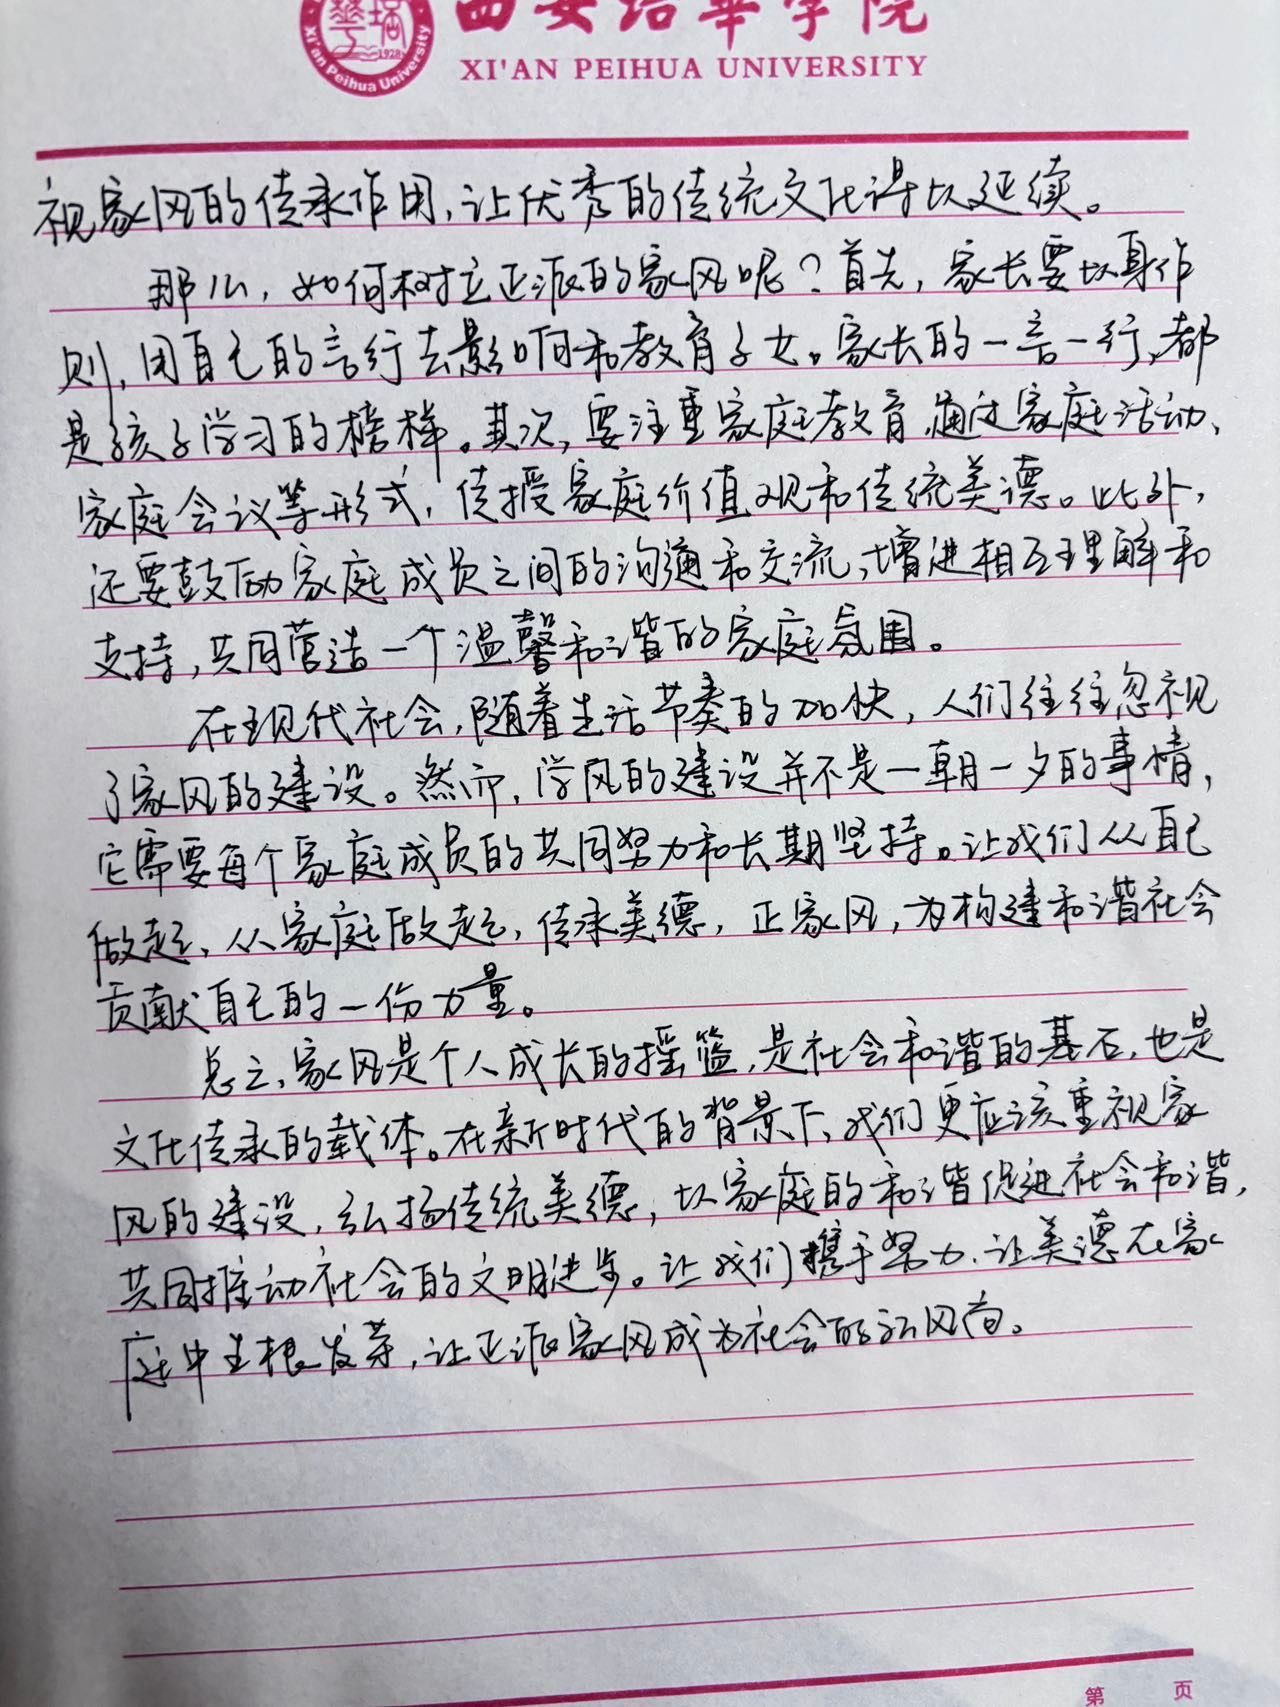 西安培華学院
XI'AN PEIHUA UNIVERSITY
1928
Xi'an Peihua University
视家风的传承作用，让优秀的传统文化得以延续。
那么，如何树立正派的家风呢？首先，家长要以身作
则，用自己的言行去影响和教育子女。家长的一言一行，都
是孩子学习的榜样。其次，要注重家庭教育，通过家庭活动、
家庭会议等形式，传授家庭价值观和传统美德。此外，
还要鼓励家庭成员之间的沟通和交流，增进相互理解和
支持，共同营造一个温馨和谐的家庭氛围。
在现代社会，随着生活节奏的加快，人们往往忽视
了家风的建设。然而，学风的建设并不是一朝一夕的事情，
它需要每个家庭成员的共同努力和长期坚持。让我们从自己
做起、从家庭做起，传承美德，正家风，为构建和谐社会
贡献自己的一份力量。
总之，家风是个人成长的摇篮，是社会和谐的基石，也是
文化传承的载体。在新时代的背景下，我们更应该重视家
风的建设，弘扬传统美德，以家庭的和谐促进社会和谐，
共同推动社会的文明进步。让我们携手努力，让美德在家
庭中生根发芽，让正派家风成为社会的新风尚。
第 页